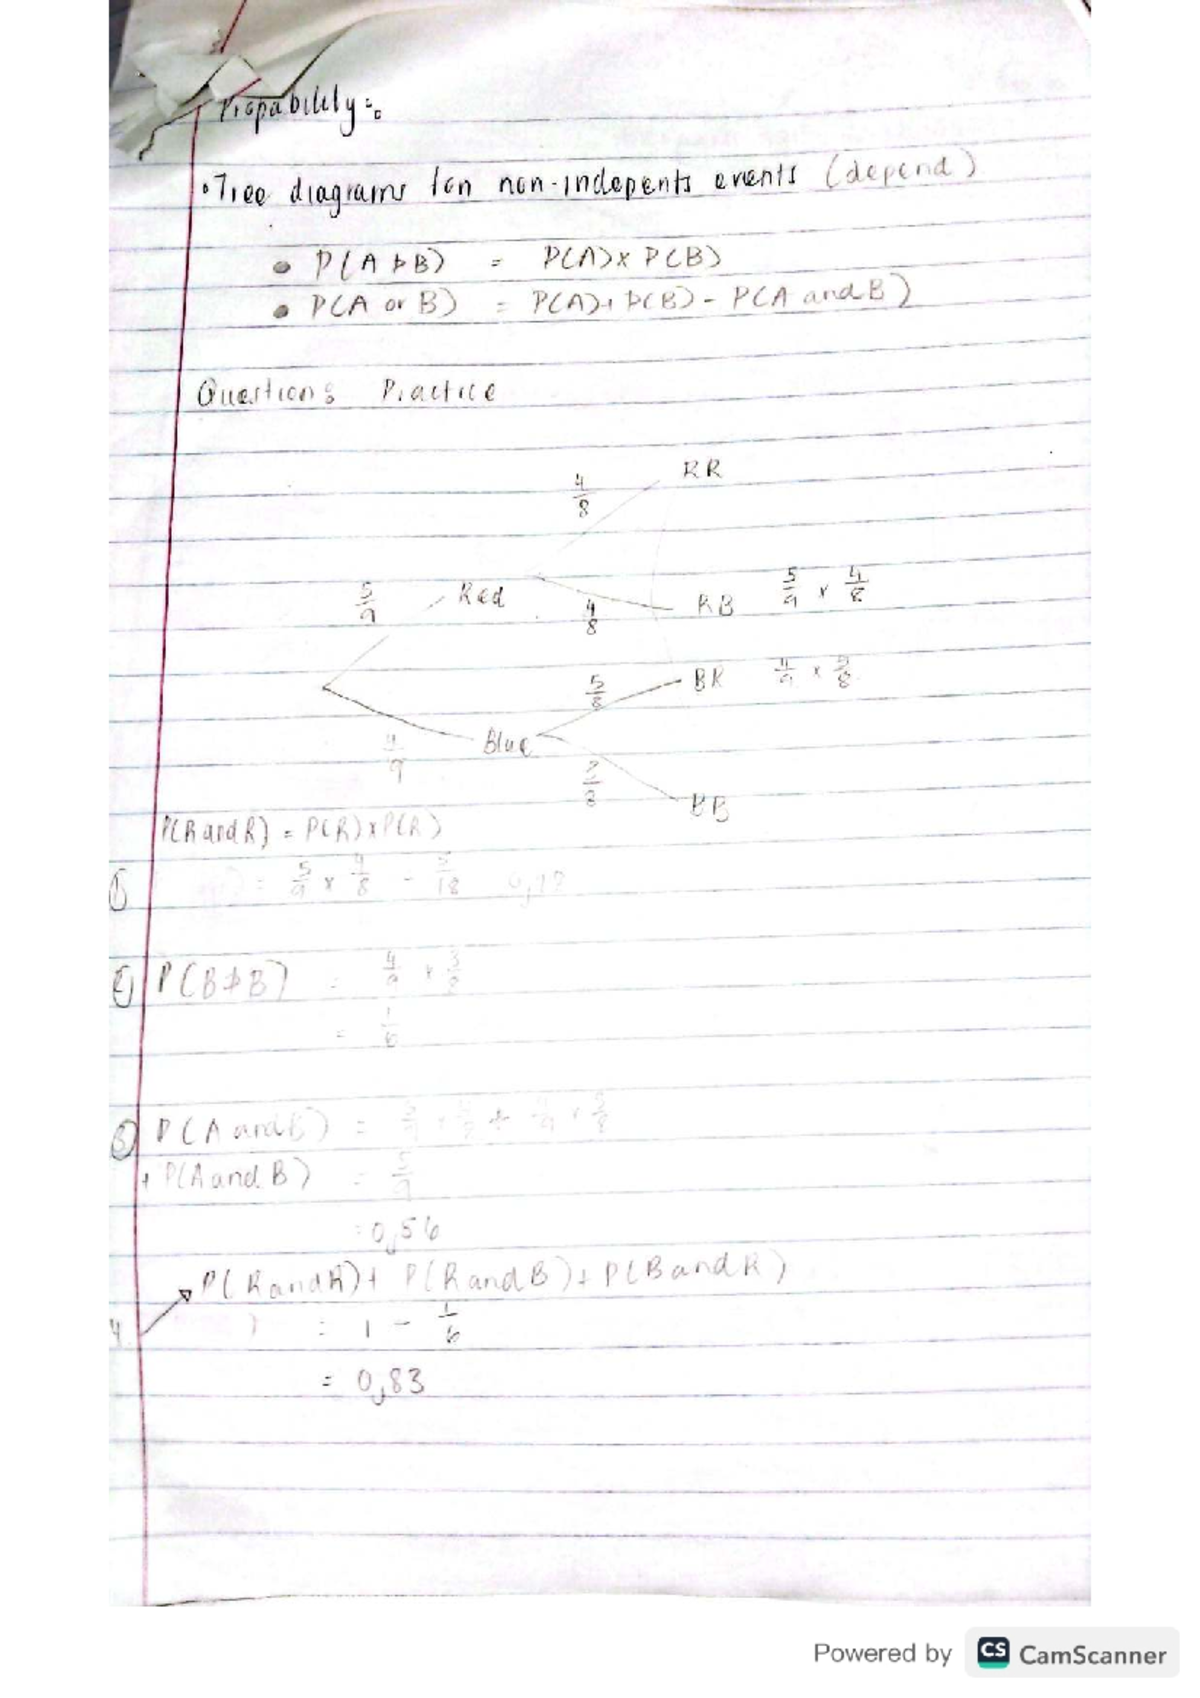 Propability :-
• Tree diagrams for non-indepents events (depend)
• P(A & B) = P(A) x P(B)
• P(A or B) = P(A) + P(B) - P(A and B)
Questions Practice
4/8 RR
5/9 Red 4/8 RB 5/9 x 4/8
5/8 BR 4/9 x 5/8
4/9 Blue 3/8 BB
P(R and R) = P(R) x P(R)
1) = 5/9 x 4/8 - 5/18
2) P(B & B) = 4/9 x 3/8
= 1/6
3) P(A and B) = 5/9 x 4/8 + 4/9 x 5/8
+ P(A and B) = 5/9
= 0,56
P(R and R) + P(R and B) + P(B and R)
4 = 1 - 1/6
= 0,83
Powered by CS CamScanner